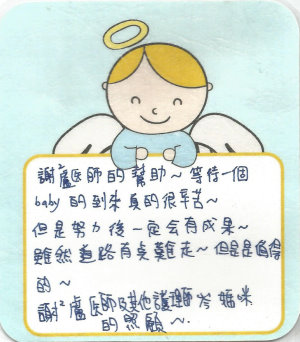 謝盧医師的幫助~等待一個
baby 的到來真的很辛苦~
但是努力後一定会有成果~
雖然道路有点難走~但是是值得
的~
謝謝盧医師及其他護理師 媽咪
的照顧~.